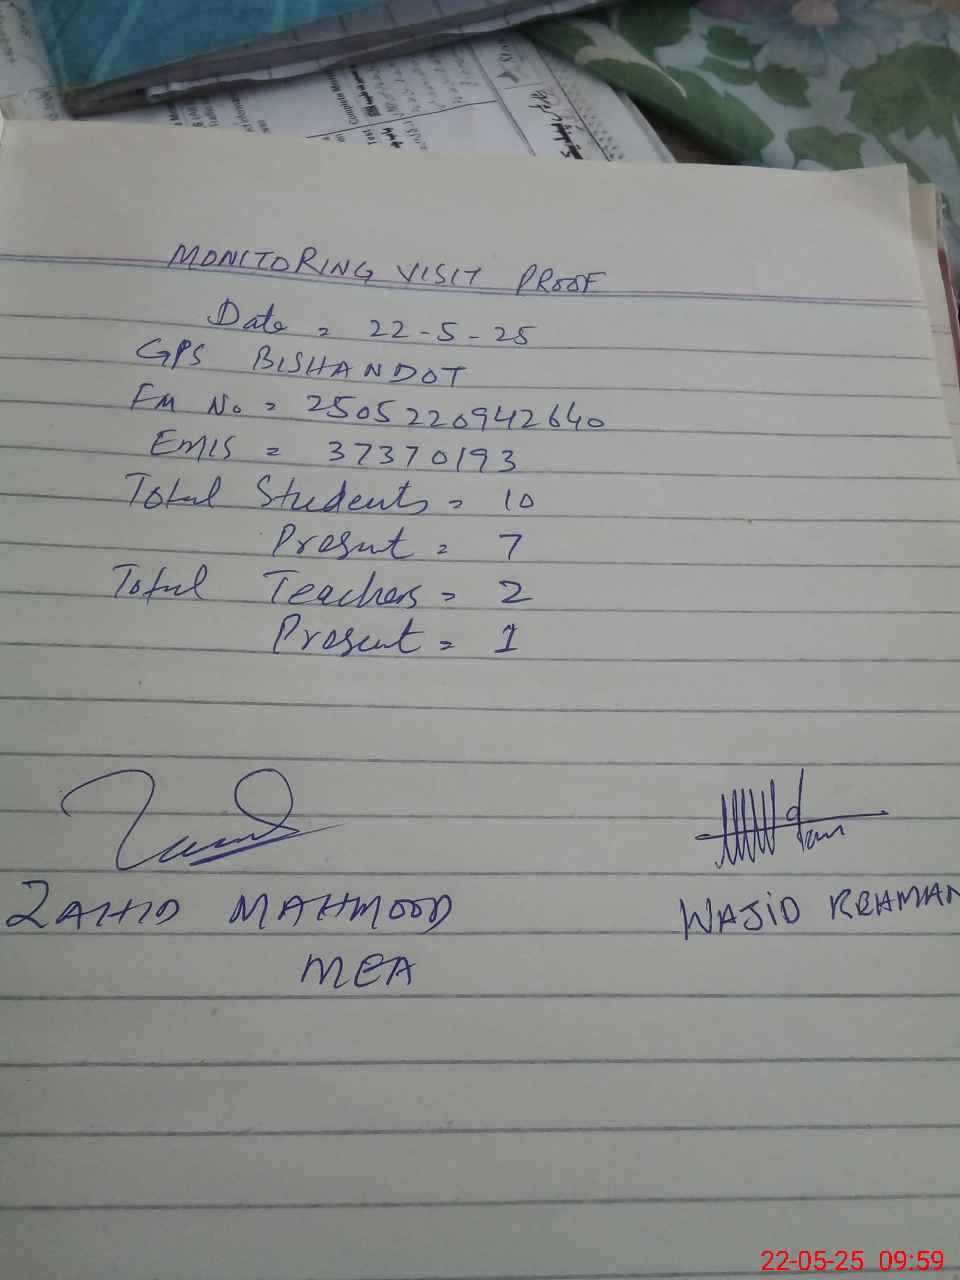 MONITORING VISIT PROOF
Date = 22-5-25
GPS BISHANDOT
FM No = 2505220942640
EMIS = 37370193
Total Students = 10
Present = 7
Total Teachers = 2
Present = 1
ZAHID MAHMOOD
WAJID REHMAN
MEA
22-05-25 09:59